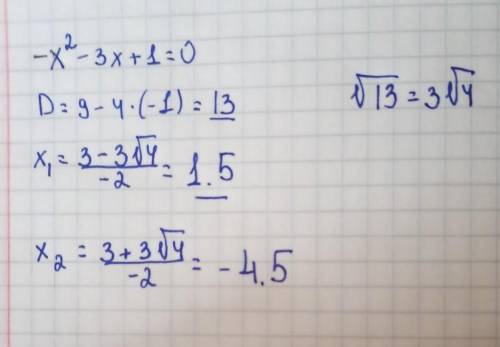 -x² - 3x + 1 = 0
D = 9 - 4·(-1) = 13
√13 = 3√4
x₁ = (3 - 3√4)/(-2) = 1.5
x₂ = (3 + 3√4)/(-2) = -4.5